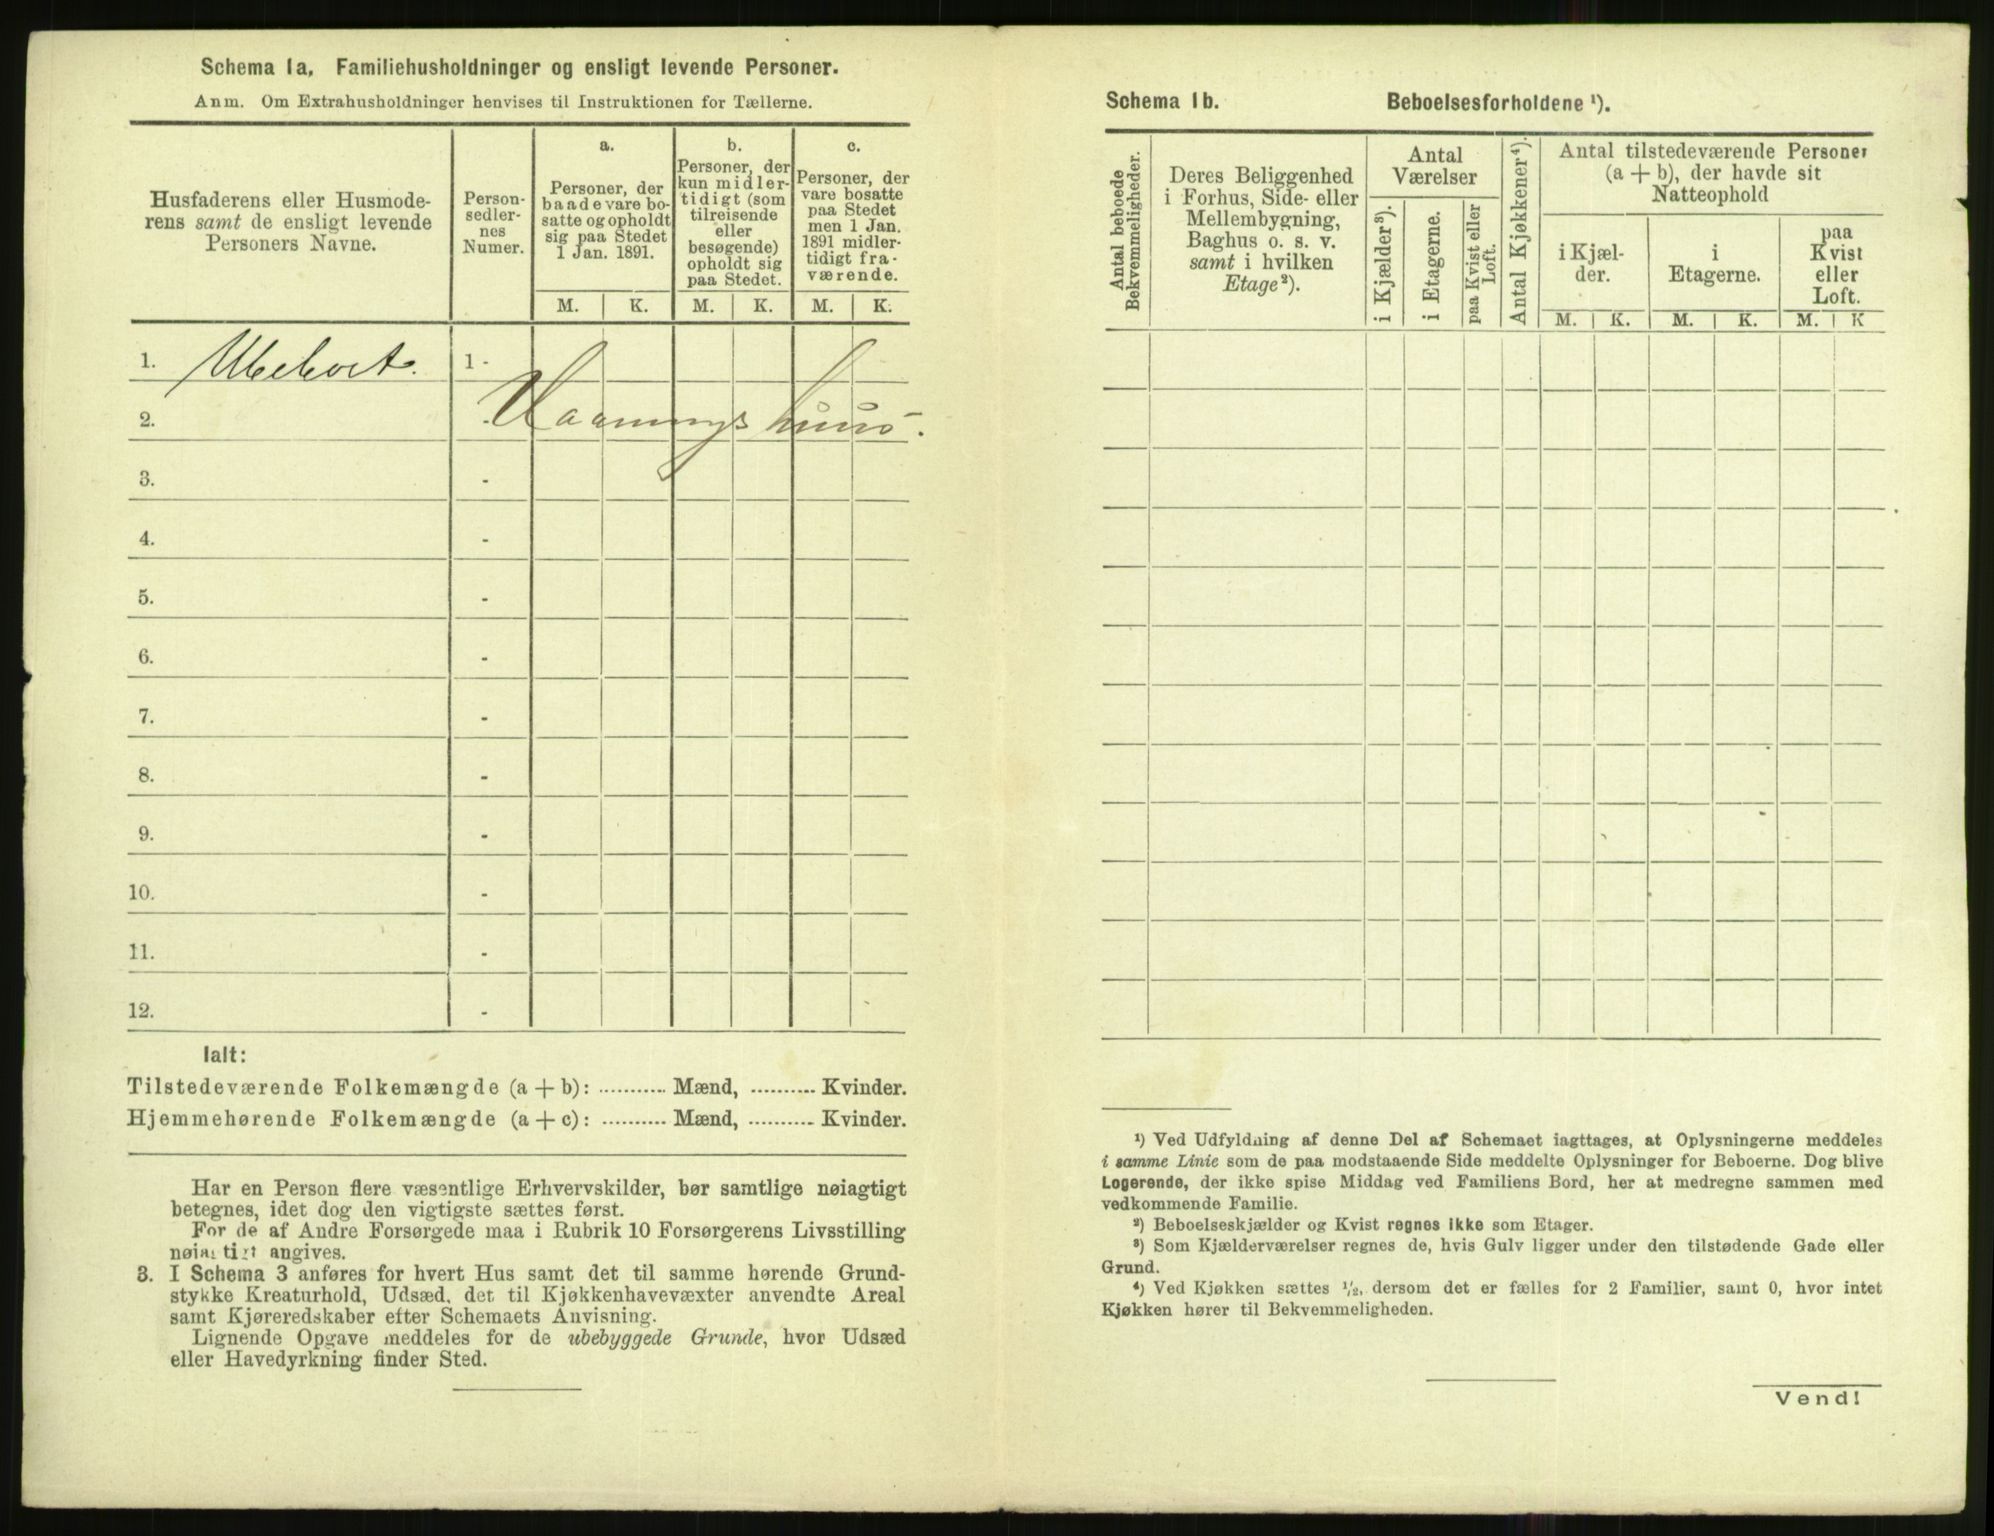 Schema 1a, Familiehusholdninger og ensligt levende Personer.
Anm. Om Extrahusholdninger henvises til Instruktionen for Tællerne.
Husfaderens eller Husmode-
rens samt de ensligt levende
Personers Navne.
Person-
sedler-
nes
Numer.
a.
Personer, der
baade vare bo-
satte og opholdt
sig paa Stedet
1 Jan. 1891.
b.
Personer, der
kun midler-
tidigt (som
tilreisende
eller
besøgende)
opholdt sig
paa Stedet.
c.
Personer, der
vare bosatte
paa Stedet
men 1 Jan.
1891 midler-
tidigt fra-
værende.
M. K. M. K. M. K.
1. Ubeboet. 1 -
2. - Vaaningshuus.
3. -
4. -
5. -
6. -
7. -
8. -
9. -
10. -
11. -
12. -
Ialt:
Tilstedeværende Folkemængde (a + b): ........... Mænd, ........... Kvinder.
Hjemmehørende Folkemængde (a + c): ........... Mænd, ........... Kvinder.
Har en Person flere væsentlige Erhvervskilder, bør samtlige nøiagtigt
betegnes, idet dog den vigtigste sættes først.
For de af Andre Forsørgede maa i Rubrik 10 Forsørgerens Livsstilling
nøiagtigt angives.
3. I Schema 3 anføres for hvert Hus samt det til samme hørende Grund-
stykke Kreaturhold, Udsæd, det til Kjøkkenhavevæxter anvendte Areal
samt Kjøreredskaber efter Schemaets Anvisning.
Lignende Opgave meddeles for de ubebyggede Grunde, hvor Udsæd
eller Havedyrkning finder Sted.
Schema 1b. Beboelsesforholdene ¹).
Antal beboede
Bekvemmeligheder.
Deres Beliggenhed
i Forhus, Side- eller
Mellembygning,
Baghus o. s. v.
samt i hvilken
Etage ²).
Antal
Værelser
i Kjælder ³).
i Etagerne.
paa Kvist eller
Loft.
Antal Kjøkkener ⁴).
Antal tilstedeværende Personer
(a + b), der havde sit
Natteophold
i Kjæl-
der.
i
Etagerne.
paa
Kvist
eller
Loft.
M. K. M. K. M. K
¹) Ved Udfyldning af denne Del af Schemaet iagttages, at Oplysningerne meddeles
i samme Linie som de paa modstaaende Side meddelte Oplysninger for Beboerne. Dog blive
Logerende, der ikke spise Middag ved Familiens Bord, her at medregne sammen med
vedkommende Familie.
²) Beboelseskjælder og Kvist regnes ikke som Etager.
³) Som Kjælderværelser regnes de, hvis Gulv ligger under den tilstødende Gade eller
Grund.
⁴) Ved Kjøkken sættes ½, dersom det er fælles for 2 Familier, samt 0, hvor intet
Kjøkken hører til Bekvemmeligheden.
Vend!